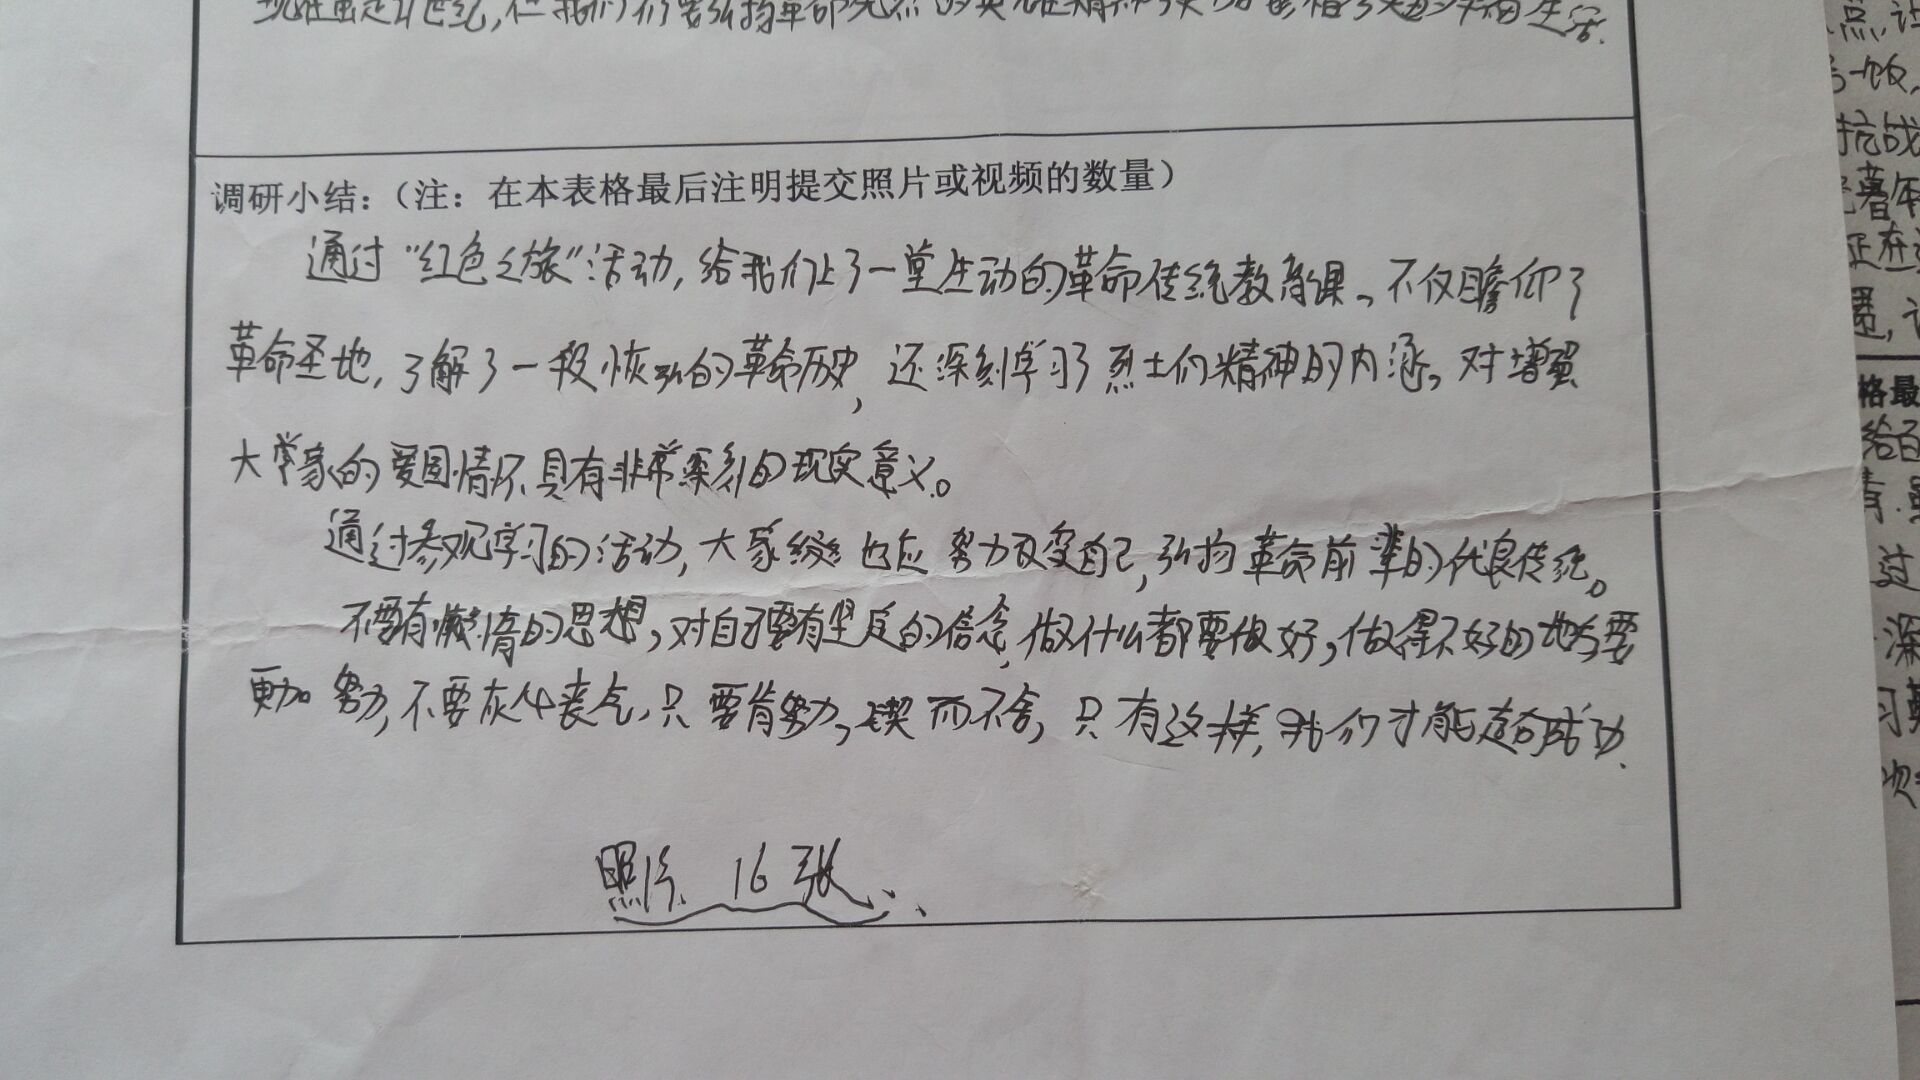 现在虽是21世纪,但我们仍要弘扬革命先烈的英雄精神
生活.
调研小结:(注:在本表格最后注明提交照片或视频的数量)
通过“红色之旅”活动,给我们上了一堂生动的革命传统教育课。不仅瞻仰了
革命圣地,了解了一段恢弘的革命历史,还深刻学习了烈士们精神的内涵。对增强
大家的爱国情怀具有非常深刻的现实意义。
通过参观学习的活动,大家也应努力改变自己,弘扬革命前辈的优良传统。
不要有懒惰的思想,对自己要有坚定的信念,做什么都要做好,做得不好的地方要
更加努力,不要灰心丧气,只要肯努力,锲而不舍,只有这样,我们才能走向成功.
照片 16张
点,
抗战
正在
格最
给百
过
深
习
次